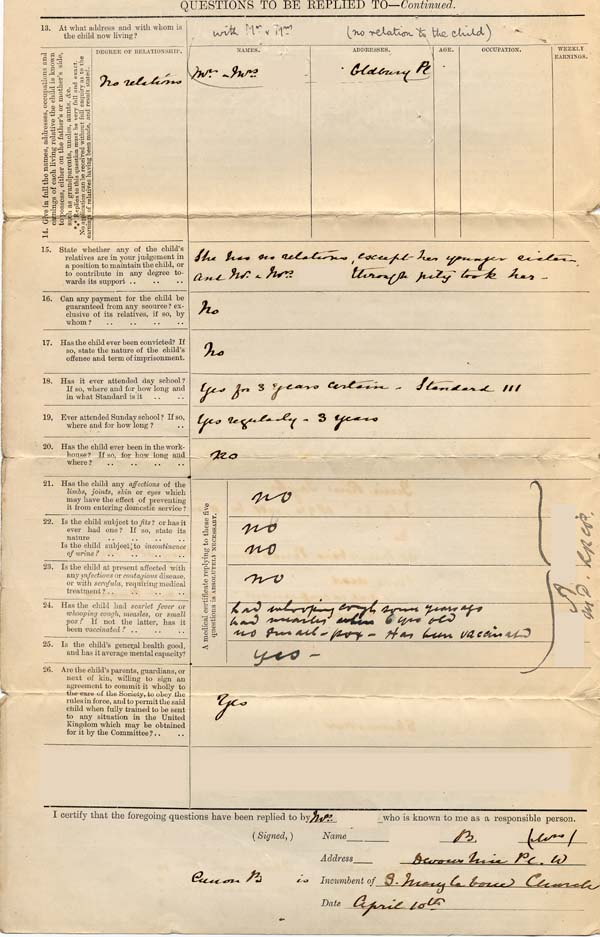 QUESTIONS TO BE REPLIED TO—Continued.
13. At what address and with whom is
the child now living?
with Mr & Mrs (no relation to the child)
14. Give in full the names, addresses, occupations and
earnings of each living relative the child is known
to possess, either on the father's or mother's side,
such as grandparents, uncles, aunts, &c.
*** Replies to this question must be very full and exact.
No application can be received without full enquiry as to the
earnings of relatives having been made, and result stated.
DEGREE OF RELATIONSHIP. NAMES. ADDRESSES. AGE. OCCUPATION. WEEKLY EARNINGS.
No relations Mr & Mrs Oldbury Pl
15. State whether any of the child's
relatives are in your judgement in
a position to maintain the child, or
to contribute in any degree to-
wards its support .. .. ..
She has no relations, except her younger sister,
and Mr & Mrs through pity took her —
16. Can any payment for the child be
guaranteed from any scource? ex-
clusive of its relatives, if so, by
whom? .. .. .. ..
No
17. Has the child ever been convicted? If
so, state the nature of the child's
offence and term of imprisonment.
No
18. Has it ever attended day school?
If so, where and for how long and
in what Standard is it .. ..
Yes for 3 years certain - Standard III
19. Ever attended Sunday school? If so,
where and for how long? ..
Yes regularly - 3 years
20. Has the child ever been in the work-
house? If so, for how long and
where? .. .. .. ..
No
A medical certificate replying to these five
questions is ABSOLUTELY NECESSARY.
21. Has the child any affections of the
limbs, joints, skin or eyes which
may have the effect of preventing
it from entering domestic service?
no
22. Is the child subject to fits? or has it
ever had one? If so, state its
nature .. .. .. ..
no
Is the child subject to incontinence
of urine? .. .. .. ..
no
23. Is the child at present affected with
any infectious or contagious disease,
or with scrofula, requiring medical
treatment? .. .. .. ..
no
24. Has the child had scarlet fever or
whooping cough, measles, or small
pox? If not the latter, has it
been vaccinated? .. .. ..
had whooping cough some years ago
had measles when 6 yrs old
no small-pox - Has been vaccinated
25. Is the child's general health good,
and has it average mental capacity?
yes —
26. Are the child's parents, guardians, or
next of kin, willing to sign an
agreement to commit it wholly to
the care of the Society, to obey the
rules in force, and to permit the said
child when fully trained to be sent
to any situation in the United
Kingdom which may be obtained
for it by the Committee? .. ..
Yes
I certify that the foregoing questions have been replied to by Mrs. who is known to me as a responsible person.
(Signed,) Name B. (Mrs)
Address Devonshire Pl. W
Canon B is Incumbent of S. Marylebone Church
Date April 10th